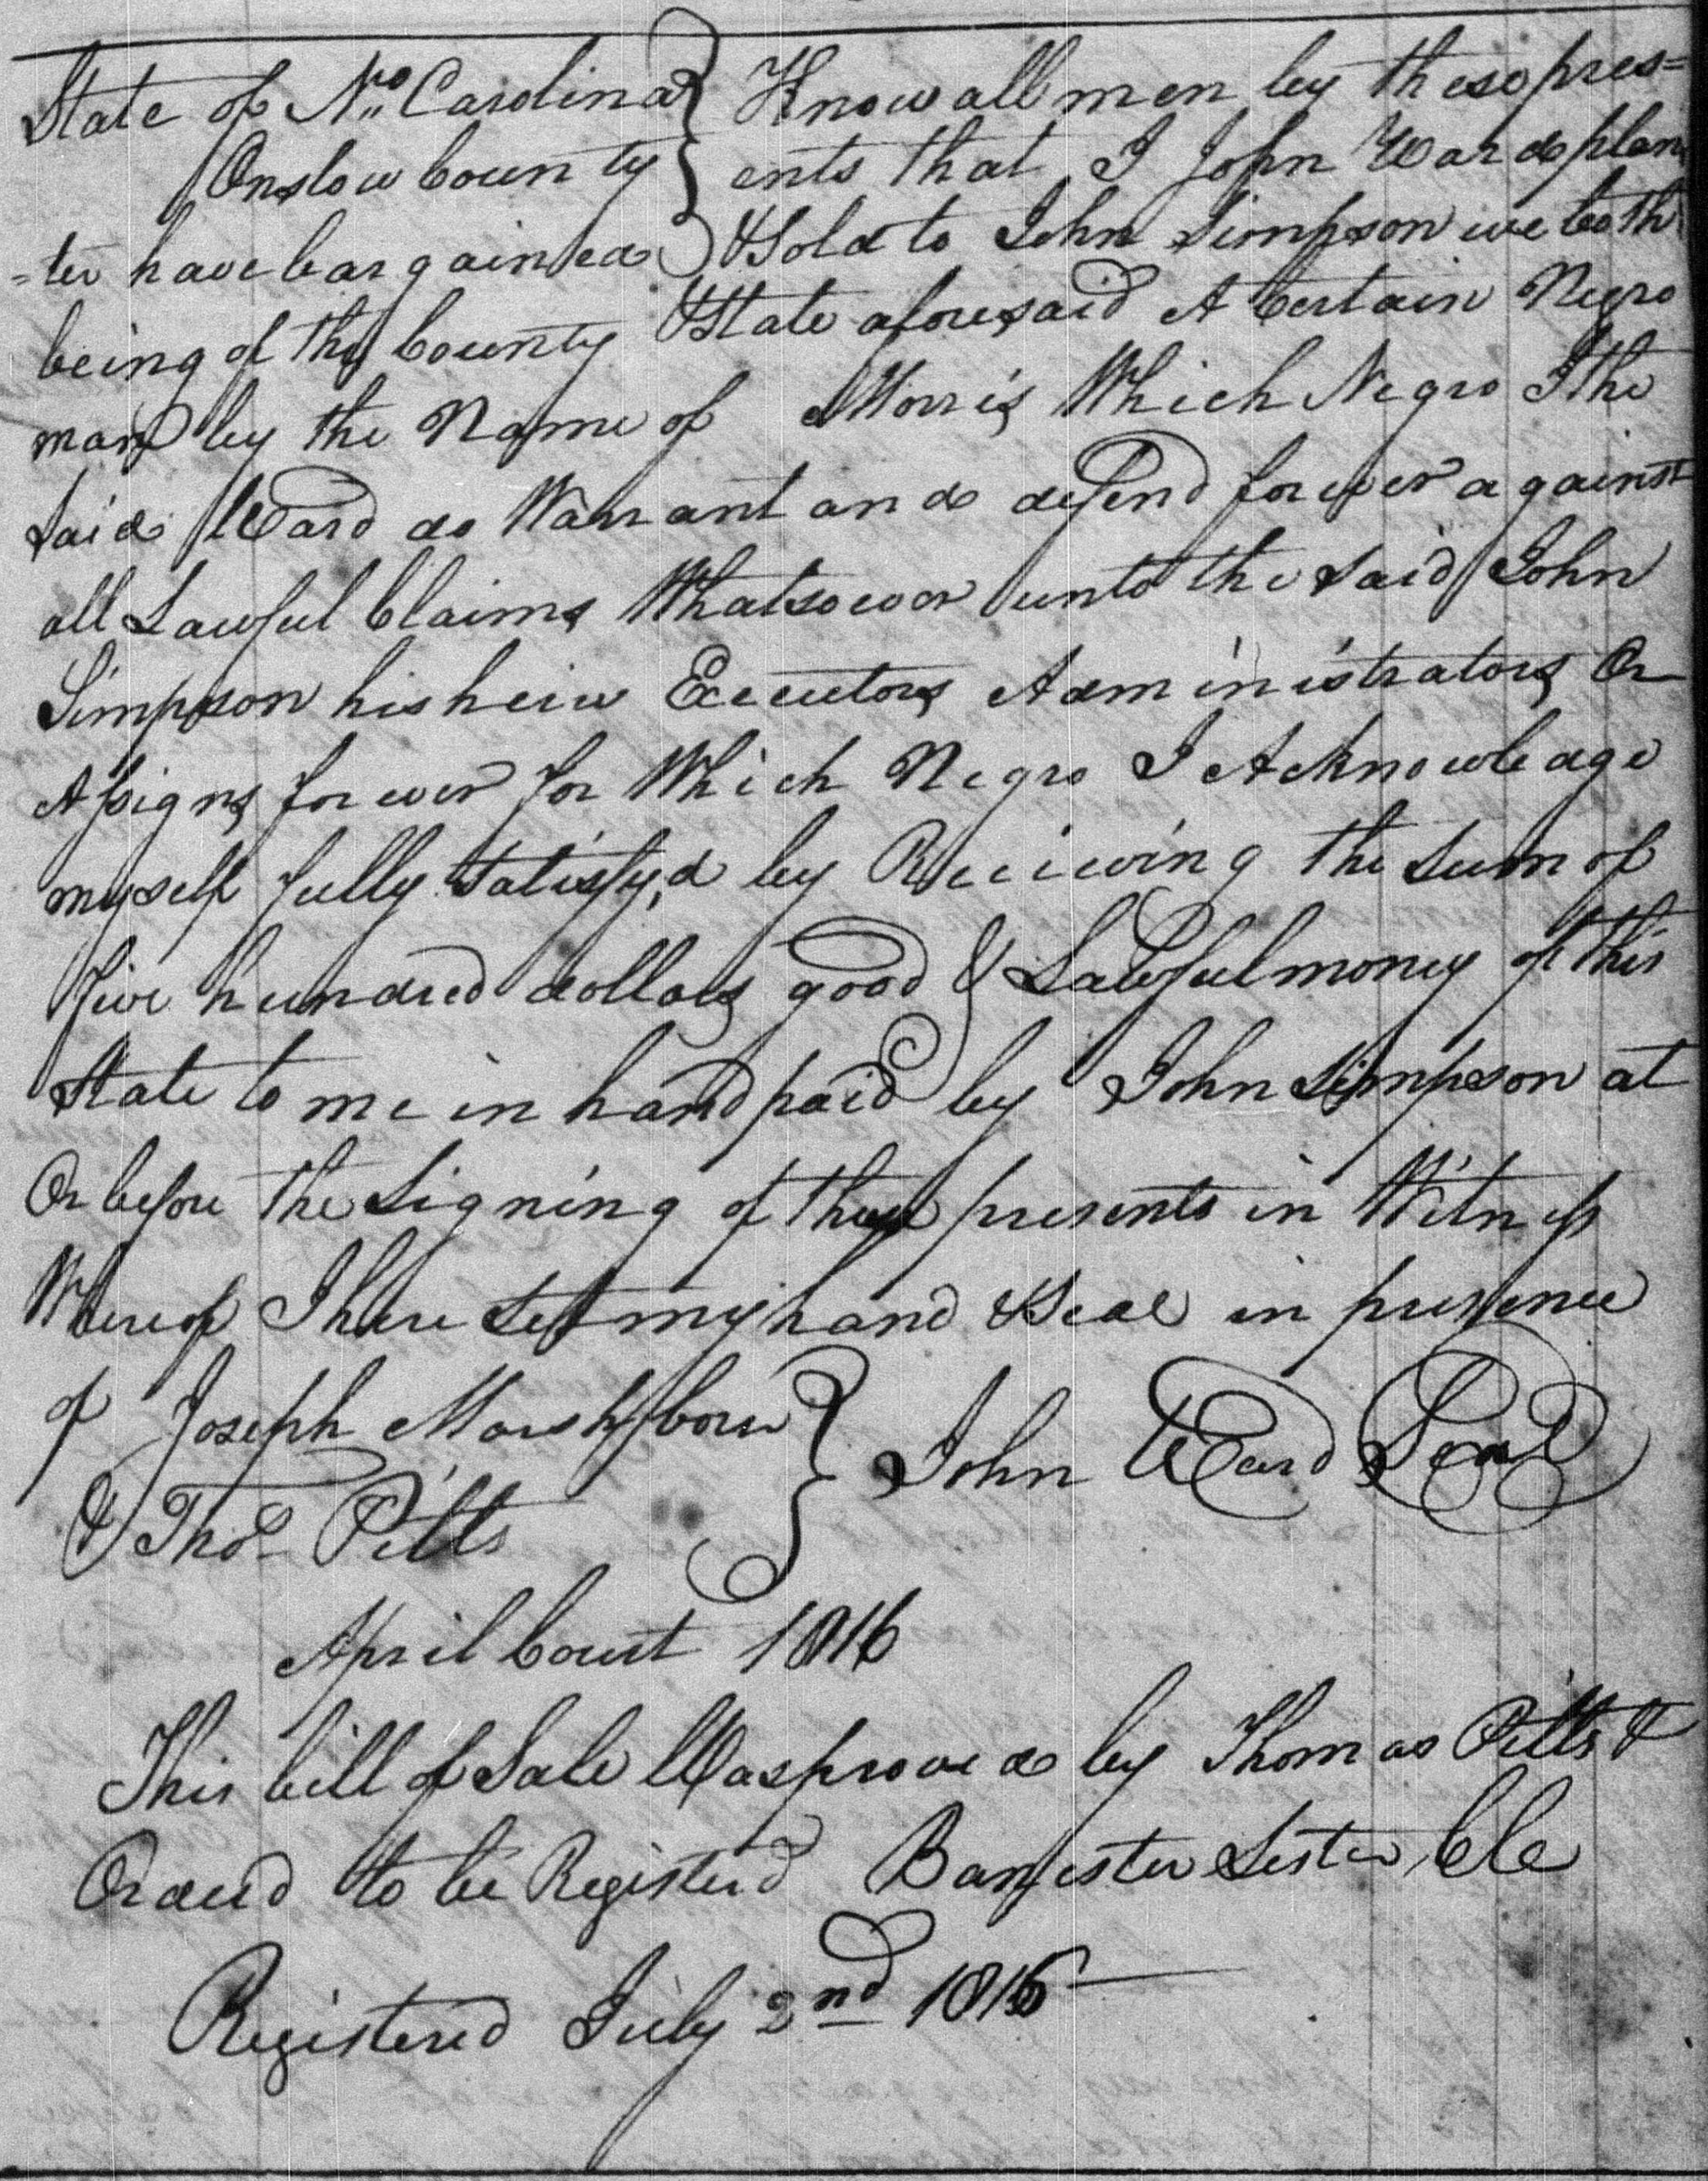 State of No. Carolina } Know all men by these pres=
Onslow County } ents that I John Ward plan
=ter have bargained } & Sold to John Simpson we both
being of the County & State aforesaid A Certain Negro
man by the Name of Morris Which Negro I the
Said Ward do Warrant and defend forever against
all Lawful Claims Whatsoever unto the said John
Simpson his heirs Executors Administrators Or
Assigns forever for Which Negro I Acknowledge
myself fully Satisfy,d by Receiving the Sum of
five hundred dollars good & Lawful money of this
State to me in hand paid by John Simpson at
Or before the Signing of these presents in Witness
Whereof I have Set my hand & Seal in presence
of Joseph Marshborn } John Ward Seal
& Thos Pitts
April Court 1816
This bill of Sale Was proved by Thomas Pitts &
Ordered to be Registerd Banister Lester, Cle
Registered July 2nd 1816